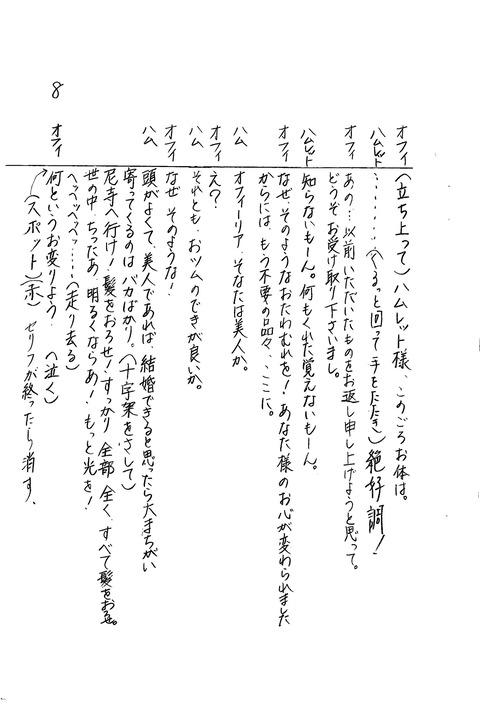 オフィ (立ち上って)ハムレット様、このごろお体は。
ハムレット ・・・・・・・(くるっと回って手をたたき)絶好調!
オフィ あの…以前いただいたものをお返し申し上げようと思って。
どうぞお受け取り下さいまし。
ハムレット 知らないもーん。何もくれた覚えないもーん。
オフィ なぜ、そのようなおたわむれを!あなた様のお心が変わられました
からには、もう不要の品々、ここに。
ハム オフィーリア、そなたは美人か。
オフィ え?
ハム それとも、おツムのできが良いか。
オフィ なぜ、そのような!
ハム 頭がよくて、美人であれば、結婚できると思ったら大まちがい
寄ってくるのはバカばかり。(十字架をさして)
尼寺へ行け!髪をおろせ!すっかり全部全く、すべて髪をおろせ。
世の中、ちったあ明るくならあ!もっと光を!
へっへっへっへっ・・・・(走り去る)
オフィ 何というお変りよう (泣く)
(スポット)(赤) セリフが終ったら消す、
8